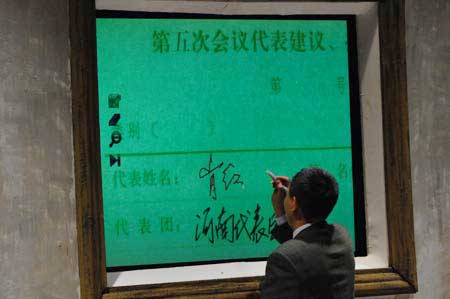 第五次会议代表建议、
第 号
别（ ）
代表姓名： 肖红 名
代表团： 河南代表